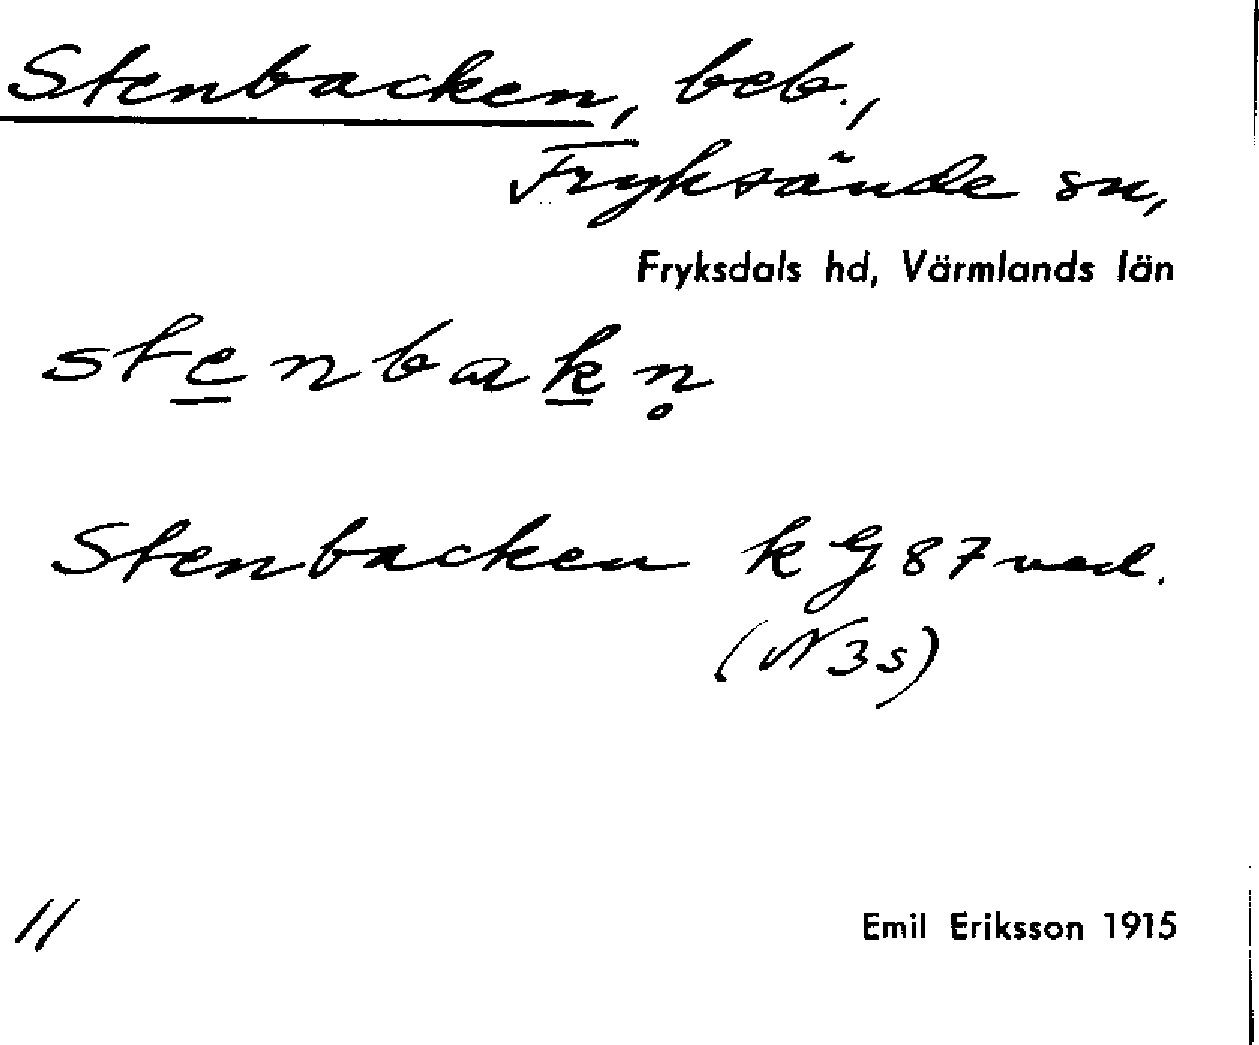 Stenbacken, beb.,
Fryksände sn,
Fryksdals hd, Värmlands län
st̲e̲nbak̲n̥
Stenbacken k G 87 ned.
(N 3 s)
11
Emil Eriksson 1915